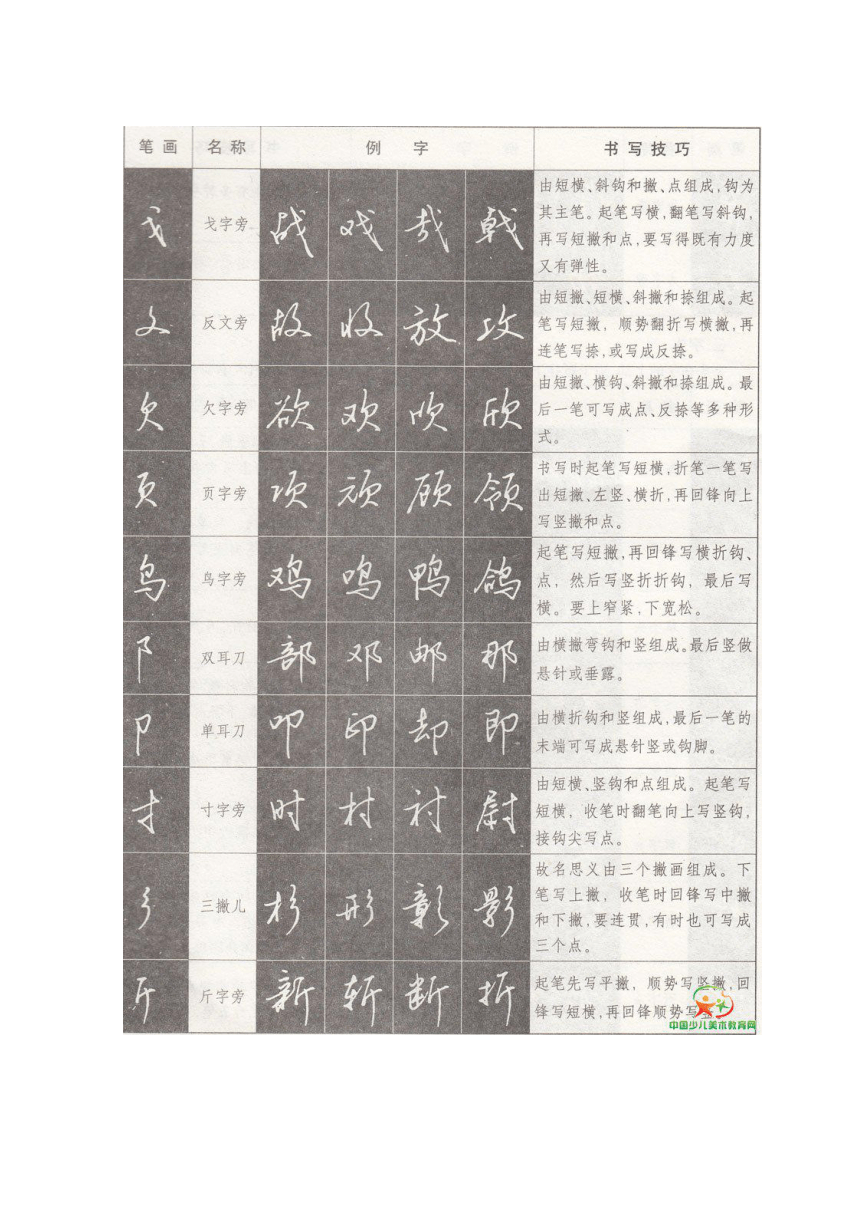 笔画 名称 例 字 书写技巧
戈 戈字旁 战 戏 哉 戟
由短横、斜钩和撇、点组成,钩为
其主笔。起笔写横,翻笔写斜钩,
再写短撇和点,要写得既有力度
又有弹性。
攵 反文旁 故 收 放 攻
由短撇、短横、斜撇和捺组成。起
笔写短撇, 顺势翻折写横撇,再
连笔写捺,或写成反捺。
欠 欠字旁 欲 欢 吹 欣
由短撇、横钩、斜撇和捺组成。最
后一笔可写成点、反捺等多种形
式。
页 页字旁 项 顽 顾 领
书写时起笔写短横,折笔一笔写
出短撇、左竖、横折,再回锋向上
写竖撇和点。
鸟 鸟字旁 鸡 鸣 鸭 鸽
起笔写短撇,再回锋写横折钩、
点, 然后写竖折折钩, 最后写
横。要上窄紧,下宽松。
阝 双耳刀 部 邓 邮 那
由横撇弯钩和竖组成。最后竖做
悬针或垂露。
卩 单耳刀 叩 印 却 即
由横折钩和竖组成,最后一笔的
末端可写成悬针竖或钩脚。
寸 寸字旁 时 村 衬 尉
由短横、竖钩和点组成。起笔写
短横, 收笔时翻笔向上写竖钩,
接钩尖写点。
彡 三撇儿 杉 形 彰 影
故名思义由三个撇画组成。下
笔写上撇, 收笔时回锋写中撇
和下撇,要连贯,有时也可写成
三个点。
斤 斤字旁 新 斩 断 折
起笔先写平撇, 顺势写竖撇,回
锋写短横,再回锋顺势写
中国少儿美术教育网